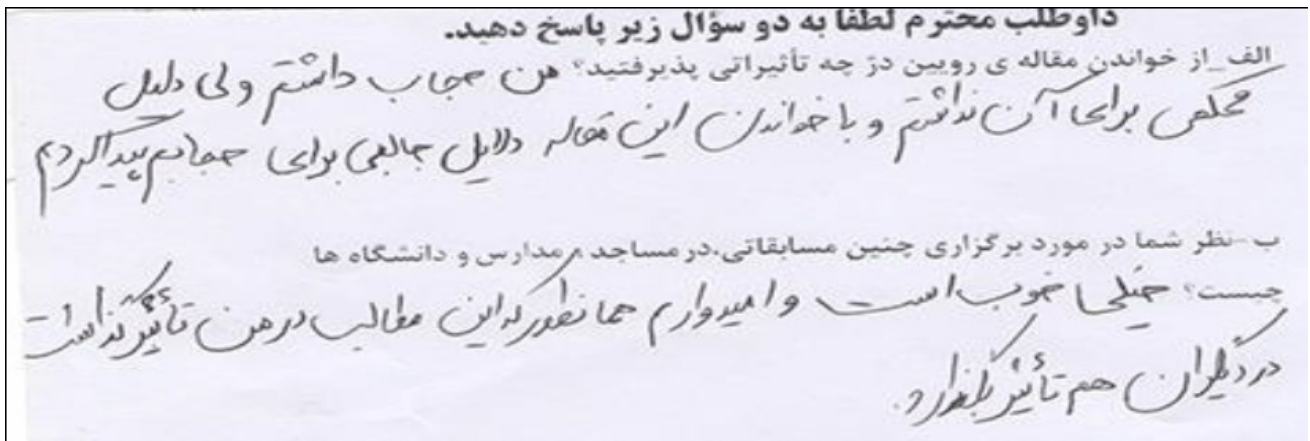 داوطلب محترم لطفا به دو سؤال زیر پاسخ دهید.
الف_از خواندن مقاله ی رویین دژ چه تأثیراتی پذیرفتید؟ من حجاب داشتم ولی دلیل
محکمی برای آن نداشتم و با خواندن این مقاله دلایل جالبی برای حجابم پیدا کردم
ب-نظر شما در مورد برگزاری چنین مسابقاتی،در مساجد، مدارس و دانشگاه ها
چیست؟ خیلی خوب است و امیدوارم همانطور که این مطالب در من تأثیر گذاشت
در دیگران هم تأثیر بگذارد.